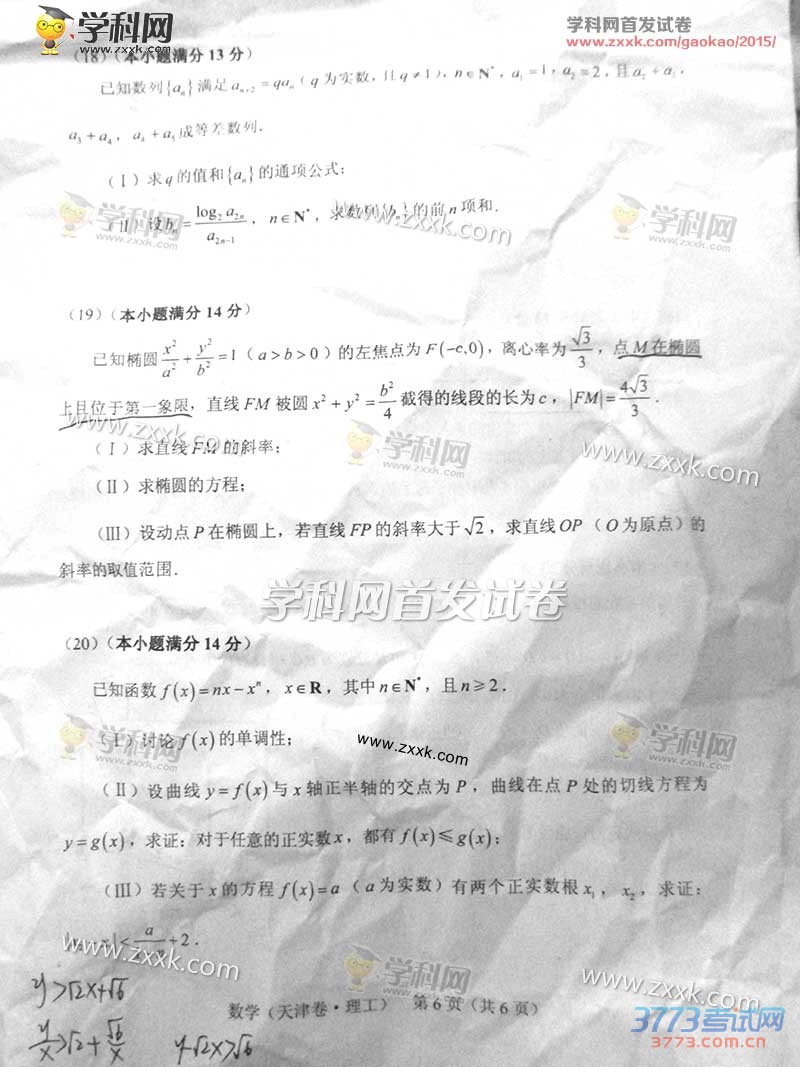 学科网
www.zxxk.com
学科网首发试卷
www.zxxk.com/gaokao/2015/
(18)(本小题满分 13 分)
已知数列{aₙ}满足 aₙ₊₂ = qaₙ（q 为实数，且 q ≠ 1），n∈N*，a₁ = 1，a₂ = 2，且 a₂ + a₃，
a₃ + a₄，a₄ + a₅ 成等差数列．
(Ⅰ) 求 q 的值和{aₙ}的通项公式；
学科网
www.zxxk.com
(Ⅱ) 设 bₙ = log₂ a₂ₙ / a₂ₙ₋₁，n∈N*，求数列{bₙ}的前 n 项和．
www.zxxk.com
学科网
www.zxxk.com
(19)(本小题满分 14 分)
已知椭圆 x²/a² + y²/b² = 1（a > b > 0）的左焦点为 F(−c,0)，离心率为 √3/3，点 M 在椭圆
上且位于第一象限，直线 FM 被圆 x² + y² = b²/4 截得的线段的长为 c，|FM| = 4√3/3．
www.zxxk.com
(Ⅰ) 求直线 FM 的斜率；
学科网
www.zxxk.com
www.zxxk.com
(Ⅱ) 求椭圆的方程；
(Ⅲ) 设动点 P 在椭圆上，若直线 FP 的斜率大于 √2，求直线 OP（O 为原点）的
斜率的取值范围．
学科网首发试卷
(20)(本小题满分 14 分)
已知函数 f(x) = nx − xⁿ，x∈R，其中 n∈N*，且 n ≥ 2．
学科网
www.zxxk.com
(Ⅰ) 讨论 f(x) 的单调性；
www.zxxk.com
学科网
www.zxxk.com
(Ⅱ) 设曲线 y = f(x) 与 x 轴正半轴的交点为 P，曲线在点 P 处的切线方程为
y = g(x)，求证：对于任意的正实数 x，都有 f(x) ≤ g(x)；
(Ⅲ) 若关于 x 的方程 f(x) = a（a 为实数）有两个正实数根 x₁，x₂，求证：
| < a/ + 2．
www.zxxk.com
学科网
www.zxxk.com
www.zxxk.com
y>√2x+√6
数学（天津卷·理工） 第 6 页（共 6 页）
y/x>√2+√6/x
y-√2x>√6
3773考试网
3773.com.cn